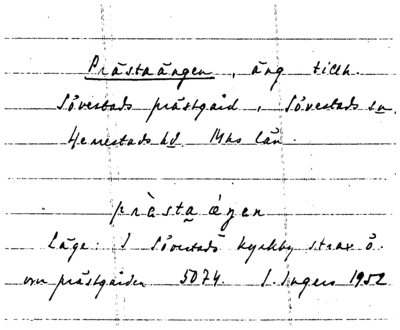 Prästaängen, äng tillh.
Sövestads prästgård, Sövestads sn,
Herrestads hd. Mhs län.
prèsta éŋen
Läge: I Sövestads kyrkby strax ö.
om prästgården 5074. I. Ingers 1952